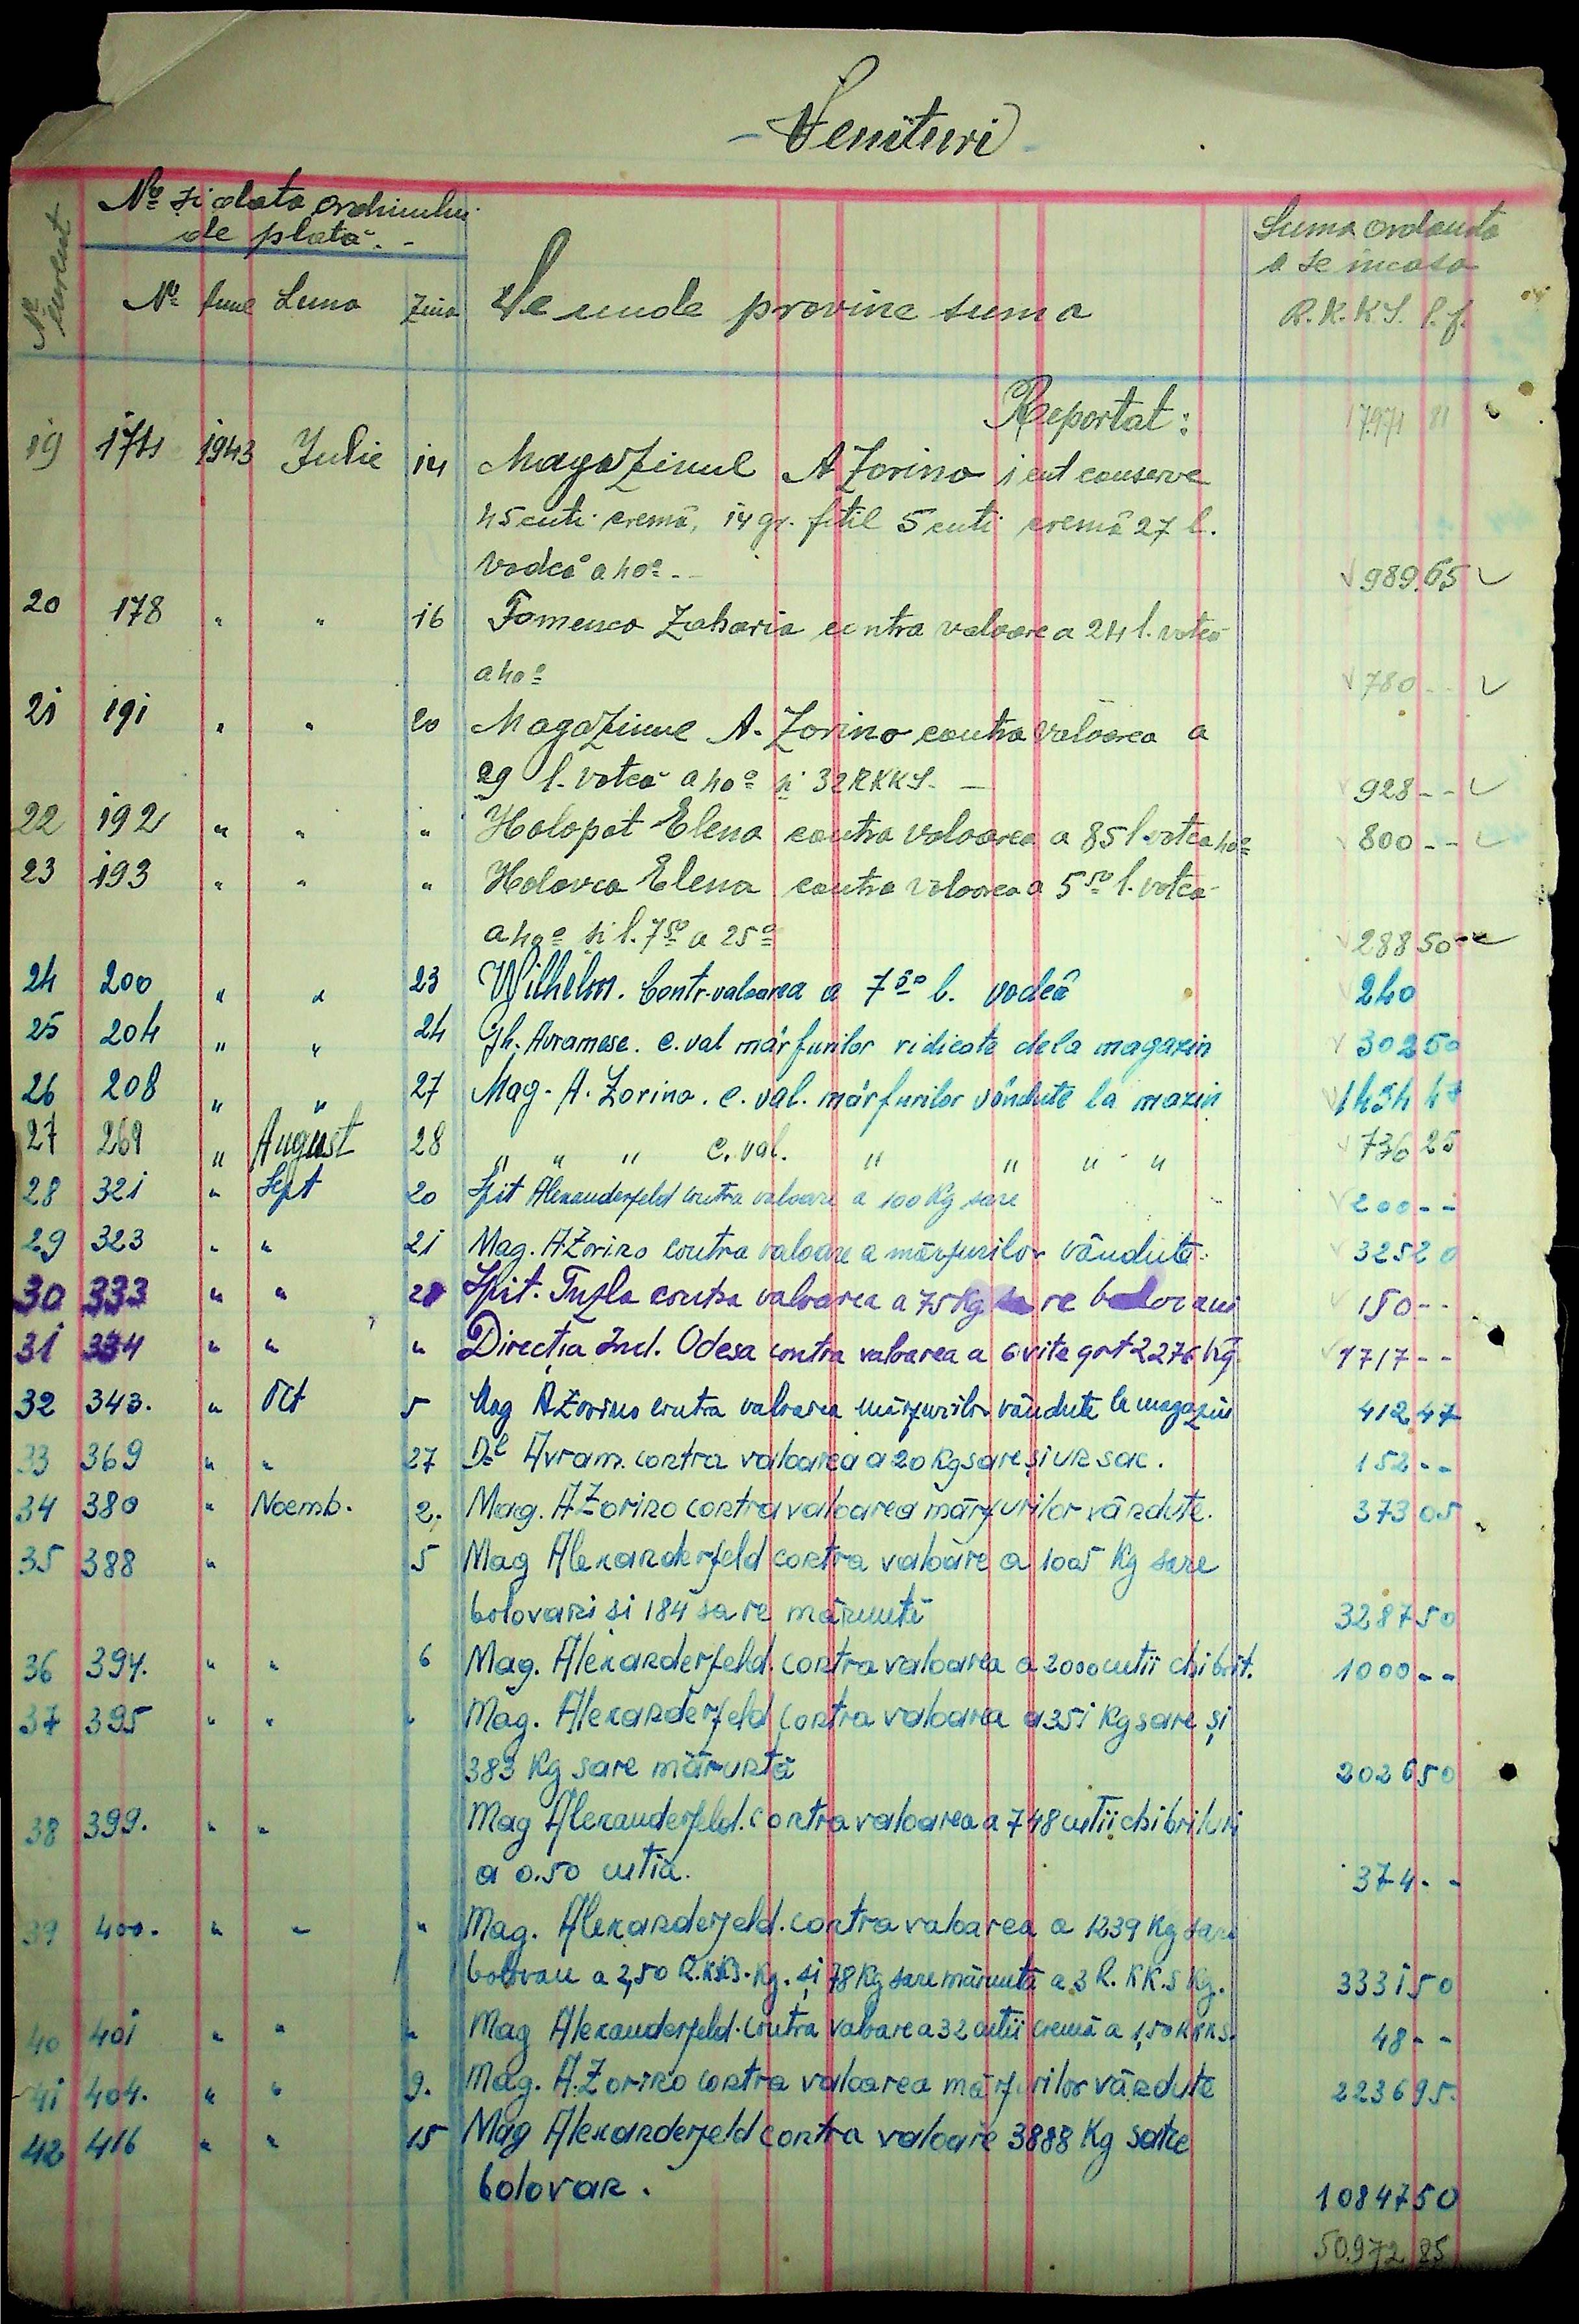 - Venituri -
No curent
No și data ordinului de plată. -
No Anul Luna Ziua
De unde provine suma
Suma ordonată a se incasa
R.K.K.S. p.f.
Reportat: 17971 81
19 174 1943 Julie 14 Magazinul A Zorino 1 cut conserve
45 cuti cremă, 14 gr. fitil 5 cuti cremă 27 l.
vodcă a 40° - 989.65
20 178 " " 16 Fomenco Zaharia contra valoare a 24 l. votcă
a 40° 780 - -
21 191 " " 20 Magazinul A. Zorino contra valoarea a
29 l. votcă a 40° și 32 RKKS. - 928 - -
22 192 " " " Holopot Elena contra valoarea a 85 l. votca 40° 800 - -
23 193 " " " Holovca Elena contra valoarea a 5 50 l. votcă
a 40° și l. 7 50 a 25° 288 50
24 200 " " 23 Wilhelm. Contr-valoarea a 7 50 l. vodcă 240
25 204 " " 24 Gh. Avramesc. c. val mărfurilor ridicate dela magazin 302 50
26 208 " " 27 Mag. A. Zorino. c. val. mărfurilor vândute la mazin 1454 47
27 269 " August 28 " " " c. val. " " " " 736 25
28 321 " Sept 20 Spit Alexanderfeld contra valoare a 100 Kg sare 200 - -
29 323 " " 21 Mag. A Zorino contra valoare a mărfurilor vândute. 325 20
30 333 " " 28 Spit. Tuzla contra valoarea a 75 Kg sare bolovani 150 - -
31 334 " " " Direcția Ind. Odesa contra valoarea a 6 vite grt 2276 kg 1717 - -
32 343. " Oct 5 Mag A Zorino contra valoarea mărfurilor vândute la magazin 412 47
33 369 " " 27 Dl Avram. contra valoarea a 20 Kg sare și un sac. 152 - -
34 380 " Noemb. 2. Mag. A Zorino contra valoarea mărfurilor vândute. 373 05
35 388 " 5 Mag Alexanderfeld contra valoare a 1005 Kg sare
bolovani si 184 sare măruntă 3287 50
36 394. " " 6 Mag. Alexanderfeld. contra valoarea a 2000 cutii chibrit. 1000 - -
37 395 " " " Mag. Alexanderfeld contra valoarea a 351 Kg sare și
383 Kg sare măruntă 2026 50
38 399. " " Mag Alexanderfeld. contra valoarea a 748 cutii chibrituri
a 0.50 cutia. 374 - -
39 400. " " " Mag. Alexanderfeld. contra valoarea a 1239 Kg sare
bolovan a 2,50 R.KKS. Kg. și 78 Kg sare măruntă a 3 R.KK.S Kg. 3331 50
40 401 " " " Mag Alexanderfeld. contra valoarea 32 cutii cremă a 1,50 RKKS. 48 - -
41 404. " " 9. Mag. A. Zorino contra valoarea mărfurilor vândute 2236 95.
42 416 " " 15 Mag Alexanderfeld contra valoare 3888 Kg sare
bolovan. 10847 50
50.972 85